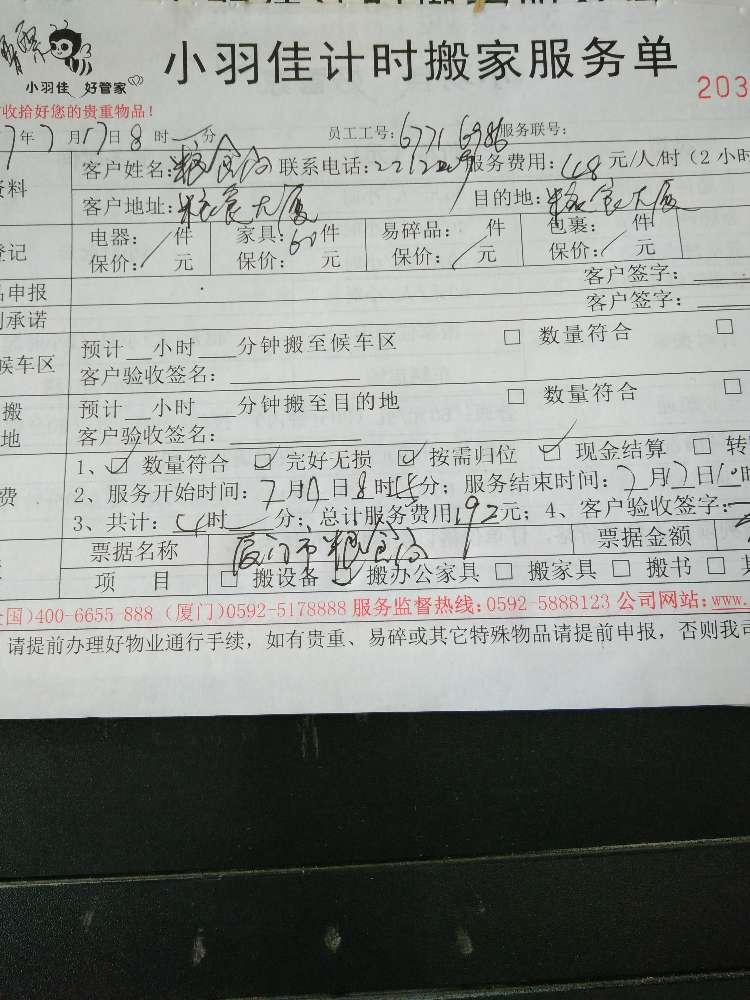 小羽佳 好管家
小羽佳计时搬家服务单
203
收拾好您的贵重物品!
7年7月17日8时 分 员工工号:6771 6986 服务联号:
资料 客户姓名:粮食局 联系电话: 服务费用:48元/人/时(2小时
客户地址:粮食大厦 目的地:粮食大厦
登记 电器: 件 家具:60件 易碎品: 件 包裹: 件
保价: 元 保价: 元 保价: 元 保价: 元
品申报 客户签字:
承诺 客户签字:
候车区 预计 小时 分钟搬至候车区 □ 数量符合 □
客户验收签名:
搬 预计 小时 分钟搬至目的地 □ 数量符合 □
地 客户验收签名:
1、☑ 数量符合 ☑ 完好无损 ☑ 按需归位 ☑ 现金结算 □ 转
费 2、服务开始时间:7月17日8时 分;服务结束时间:7月17日 时
3、共计: 时 分;总计服务费用192元;4、客户验收签字:
票据名称 厦门市粮食局 票据金额
项 目 □ 搬设备 ☑ 搬办公家具 □ 搬家具 □ 搬书 □ 其
全国)400-6655 888 (厦门)0592-5178888 服务监督热线:0592-5888123 公司网站:www.
请提前办理好物业通行手续,如有贵重、易碎或其它特殊物品请提前申报,否则我司